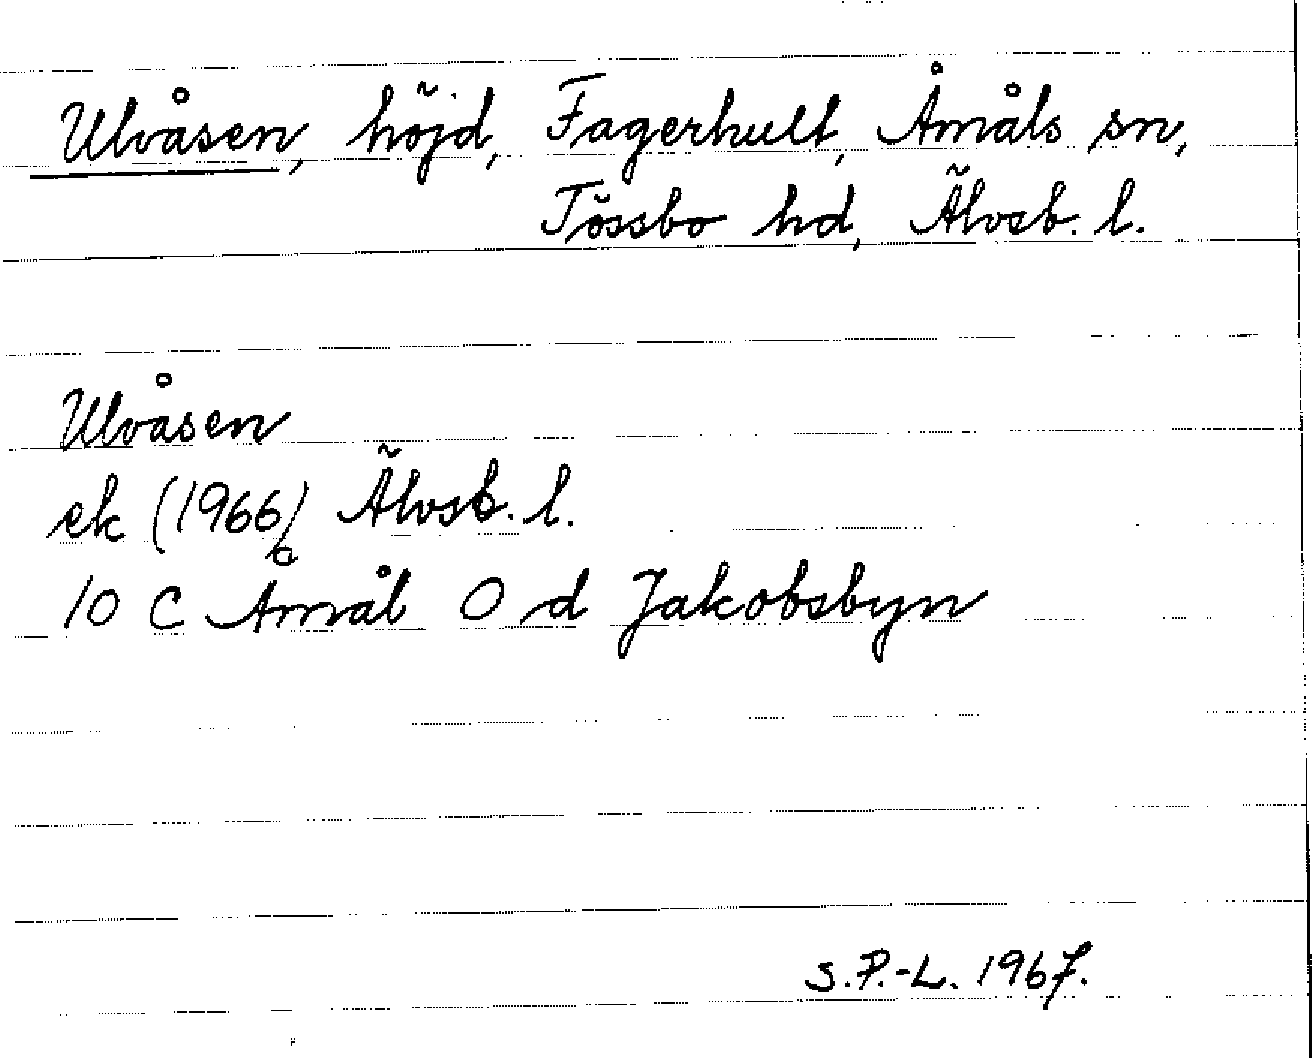 Ulvåsen, höjd, Fagerhult, Åmåls sn,
Tössbo hd, Älvsb. l.
Ulvåsen
ek (1966) Älvsb. l.
10 C Åmål O d Jakobsbyn
S.P.-L. 1967.